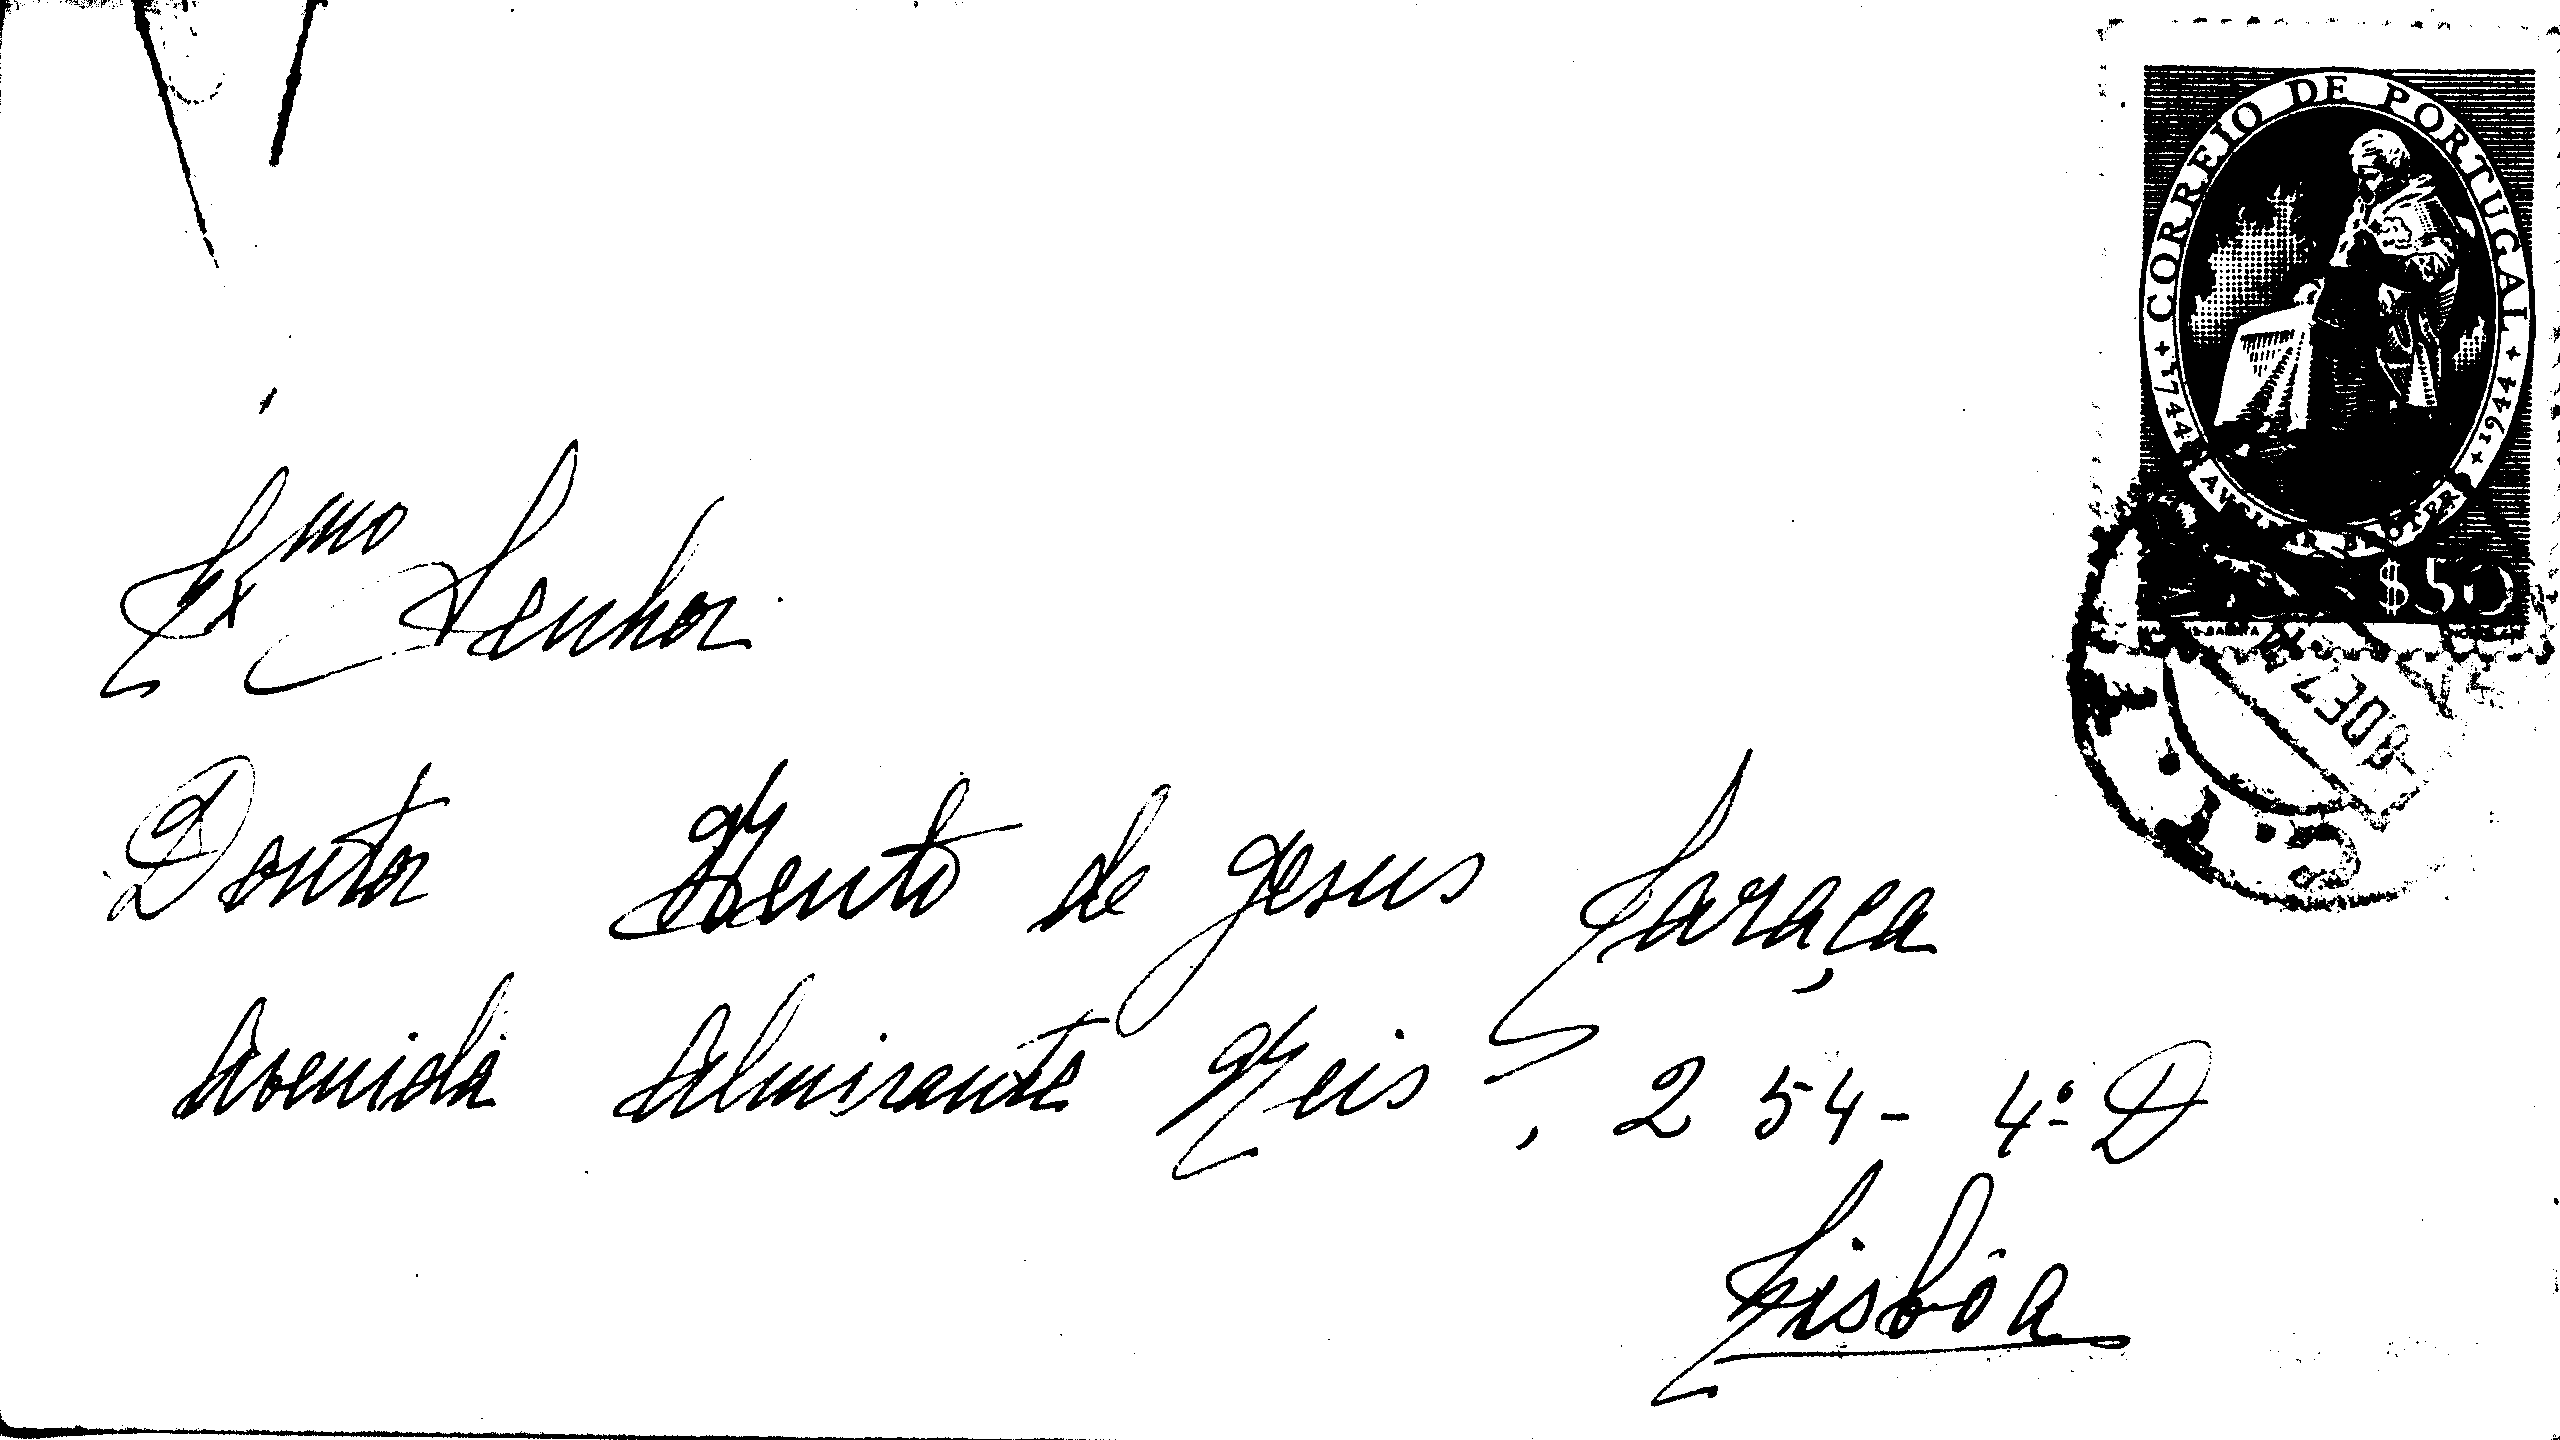 CORREIO DE PORTUGAL
1744 1944
$50
8 DEZ
Exmo Senhor
Doutor Bento de Jesus Caraça
Avenida Almirante Reis, 254 - 4º D
Lisbôa